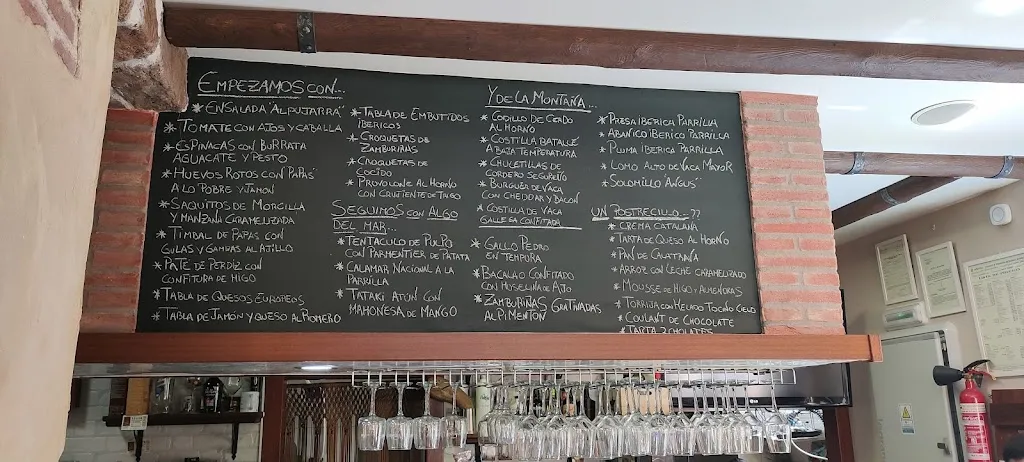 EMPEZAMOS CON...
* ENSALADA 'ALPUJARRA'
* TOMATE CON AJOS Y CABALLA
* ESPINACAS CON BURRATA
AGUACATE Y PESTO
* HUEVOS ROTOS CON PAPAS
A LO POBRE Y JAMON
* SAQUITOS DE MORCILLA
Y MANZANA CARAMELIZADA
* TIMBAL DE PAPAS CON
GULAS Y GAMBAS AL AJILLO
* PATE DE PERDIZ CON
CONFITURA DE HIGO
* TABLA DE QUESOS EUROPEOS
* TABLA DE JAMON Y QUESO AL ROMERO
* TABLA DE EMBUTIDOS
IBERICOS
* CROQUETAS DE
ZAMBURIÑAS
* CROQUETAS DE
COCIDO
* PROVOLONE AL HORNO
CON CRUJIENTE DE TRIGO
SEGUIMOS CON ALGO
DEL MAR...
* TENTACULO DE PULPO
CON PARMENTIER DE PATATA
* CALAMAR NACIONAL A LA
PARRILLA
* TATAKI ATUN CON
MAHONESA DE MANGO
* GALLO PEDRO
EN TEMPURA
* BACALAO CONFITADO
CON MUSELINA DE AJO
* ZAMBURIÑAS GRATINADAS
AL PIMENTON
Y DE LA MONTAÑA...
* CODILLO DE CERDO
AL HORNO
* COSTILLA BATALLE
A BAJA TEMPERATURA
* CHULETILLAS DE
CORDERO SEGUREÑO
* BURGUER DE VACA
CON CHEDDAR Y BACON
* COSTILLA DE VACA
GALLEGA CONFITADA
* PRESA IBERICA PARRILLA
* ABANICO IBERICO PARRILLA
* PLUMA IBERICA PARRILLA
* LOMO ALTO DE VACA MAYOR
* SOLOMILLO ANGUS
UN POSTRECILLO...??
* CREMA CATALANA
* TARTA DE QUESO AL HORNO
* PAN DE CALATRAVA
* ARROZ CON LECHE CARAMELIZADO
* MOUSSE DE HIGO Y ALMENDRAS
* TORRIJA CON HELADO TOCINO CIELO
* COULANT DE CHOCOLATE
* TARTA 3 CHOLATES